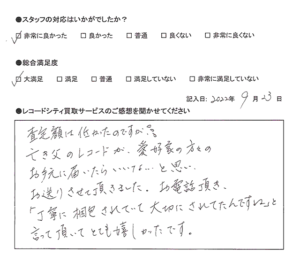 ●スタッフの対応はいかがでしたか？
☑非常に良かった □良かった □普通 □良くない □非常に良くない
●総合満足度
☑大満足 □満足 □普通 □満足していない □非常に満足していない
記入日: 2022年 9月 23日
●レコードシティ買取サービスのご感想を聞かせてください
査定額は低かたのですが
亡き父のレコードが、愛好家の方々の
お手元に届いたらいいな…と思い、
お送りさせて頂きました。お電話頂き、
「丁寧に梱包されていて大切にされてたんですね」と
言って頂いてとても嬉しかったです。